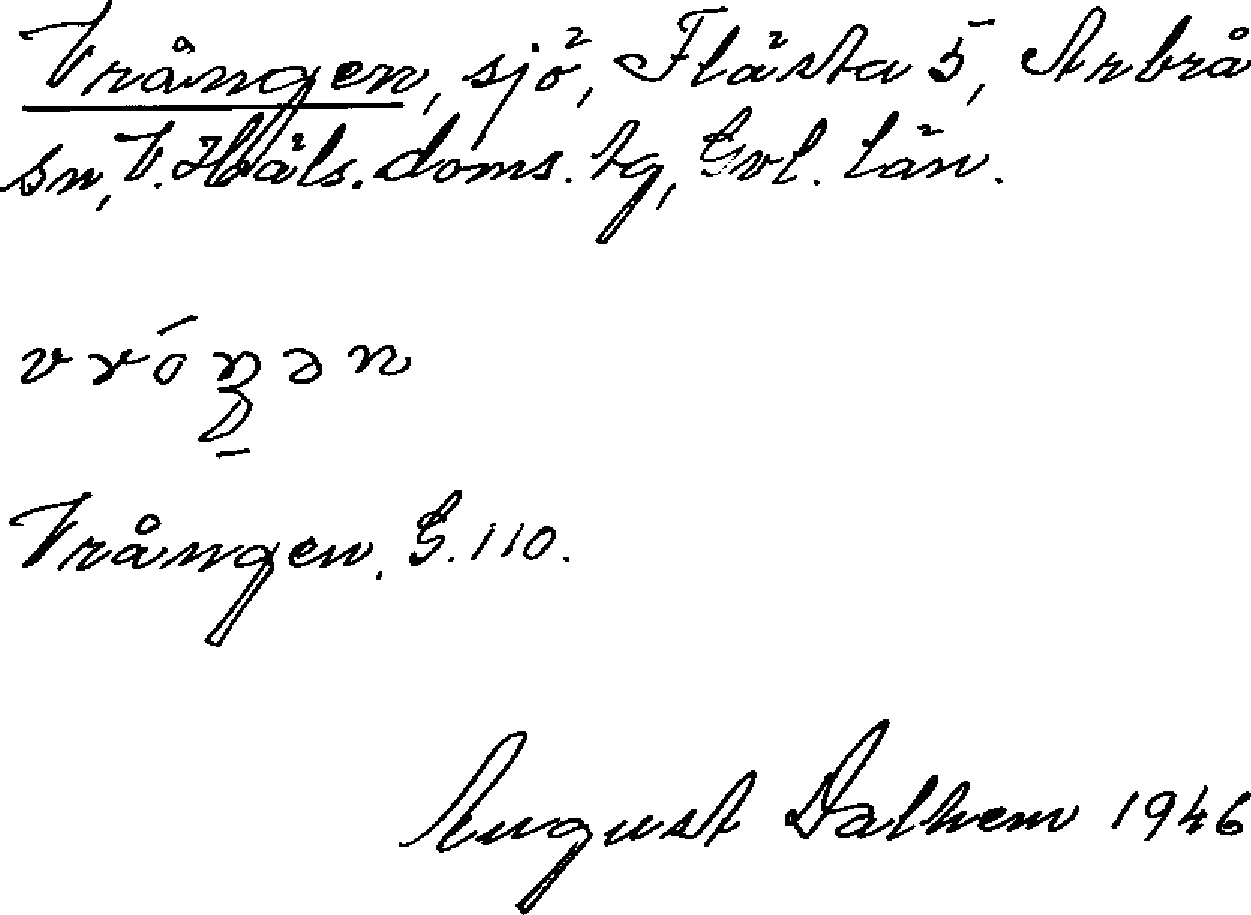 Vrången, sjö, Flästa 5, Arbrå
sn, V. Häls. doms. tg, Gvl. län.
vróŋən
Vrången. G. 110.
August Dalhem 1946